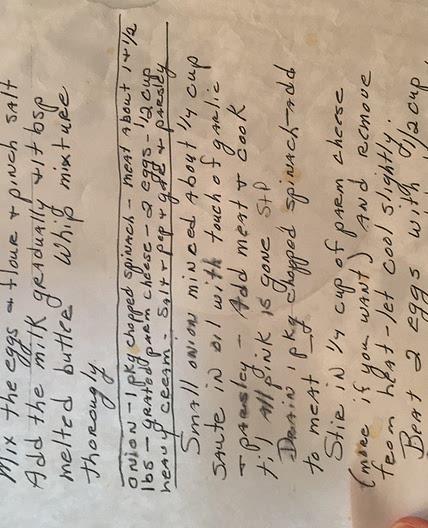 Mix the eggs + flour + pinch salt
Add the milk gradually + 1 tbsp
melted butter Whip mixture
thoroughly
onion - 1 pkg chopped spinach - meat About 1 + 1/2
lbs - grated parm cheese - 2 eggs - 1/2 cup
heavy cream - salt + pep + garlic + parsley
Small onion minced About 1/4 cup
saute in oil with touch of garlic
+ parsley - Add meat + cook
til All pink is gone S+P
Drain 1 pkg chopped spinach - add
to meat
Stir in 1/4 cup of parm cheese
(more if you want) And remove
from heat - let cool slightly.
Beat 2 eggs with 1/2 cup